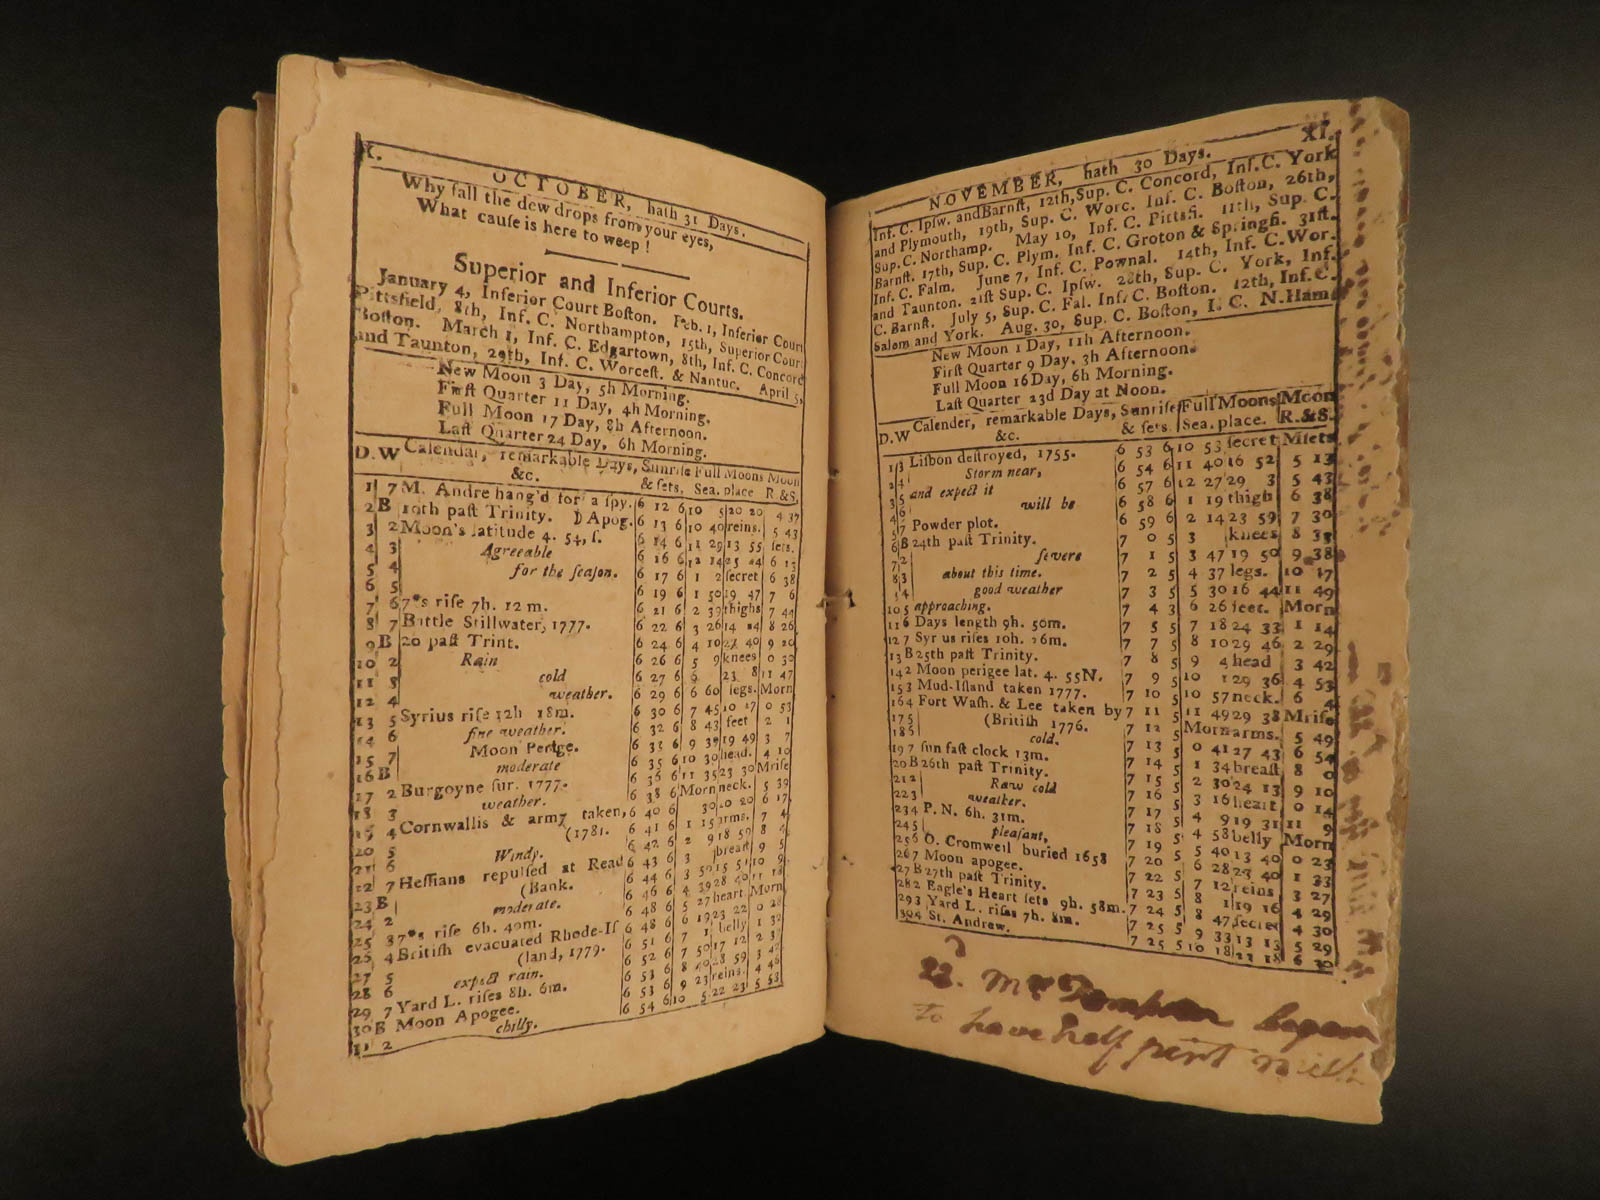 X.
OCTOBER, hath 31 Days.
Why fall the dew drops from your eyes,
What cauſe is here to weep !
Superior and Inferior Courts.
January 4, Inferior Court Boſton. Feb. 1, Inferior Court
Pittsfield, 8th, Inf. C. Northampton, 15th, Superior Court
Boſton. March 1, Inf. C. Edgartown, 8th, Inf. C. Concord
and Taunton, 29th, Inf. C. Worceſt. & Nantuc. April 5,
New Moon 3 Day, 5h Morning.
Firſt Quarter 11 Day, 4h Morning.
Full Moon 17 Day, 8h Afternoon.
Laſt Quarter 24 Day, 6h Morning.
D. W Calendar, remarkable Days, Sunriſe Full Moons Moon
&c. & ſets, Sea. place R. &S,
1 7 M. Andre hang'd for a ſpy. 6 12 6 10 5 20 20 4 37
2 B 19th paſt Trinity. Apog. 6 13 6 10 40 reins. 5 43
3 2 Moon's latitude 4. 54, ſ. 6 14 6 11 29 13 55 ſets.
4 3 Agreeable
5 4 for the ſeaſon. 6 17 6 1 2 ſecret 6 38
6 5
7 6 7*s riſe 7h. 12 m. 6 21 6 2 39 thighs 7 44
8 7 Battle Stillwater, 1777. 6 22 6 3 26
9 B 20 paſt Trint. 6 24 6 4 10
10 2 Rain 6 26 6 5 9 knees
11 3 cold 6 27 6
12 4 weather. 6 29 6 legs. Morn
13 5 Syrius riſe 12h 18m. 6 30 6 7 45 10 17 0 53
14 6 fine weather. 6 32 6 8 43 feet 2 1
15 7 Moon Perige. 6 33 6 9 39 19 49 3 7
16 B moderate 6 35 6 10 30 head. 4 10
17 2 Burgoyne ſur. 1777. 6 36 6 11 35 23 30 Mriſe
18 3 weather. 6 38 6 Morn neck. 5 39
19 4 Cornwallis & army taken, 6 40 6
20 5 (1781. 6 41 6 1 15 arms. 7 4
21 6 Windy. 6 42 6 2 9 18 59 8 4
22 7 Heſſians repulſed at Read 6 43 6 3 breaſt 9 5
23 B (Bank. 6 44 6
24 2 moderate. 6 46 6
25 3 7*s riſe 6h. 40m. 6 48 6 5 27 heart. Morn
26 4 Britiſh evacuated Rhode-Iſ 6 48 6 6 19 23 22 0 28
27 5 (land, 1779. 6 51 6 7 1 belly 1 32
28 6 expect rain. 6 52 6 7 50 17 12 2 37
29 7 Yard L. riſes 8h. 6m. 6 53 6 8 40 28 59 3 42
30 B Moon Apogee. 6 53 6 9 23 reins. 4 46
31 2 chilly. 6 54 6 10 5 22 23 5 53
XI.
NOVEMBER, hath 30 Days.
Inf. C. Ipſw. and Barnſt, 12th, Sup. C. Concord, Inſ. C. York
and Plymouth, 19th, Sup. C. Worc. Inf. C. Boſton, 26th,
Sup. C. Northamp. May 10, Inf. C. Pittsfi. 11th, Sup. C.
Barnſt. 17th, Sup. C. Plym. Inf. C. Groton & Springfi. 31ſt.
Inf. C. Falm. June 7, Inf. C. Pownal. 14th, Inf. C. Wor.
and Taunton. 21ſt Sup. C. Ipſw. 28th, Sup. C. York, Inf.
C. Barnſt. July 5, Sup. C. Fal. Inf. C. Boſton. 12th, Inf. C.
Salem and York. Aug. 30, Sup. C. Boſton, I. C. N. Ham.
New Moon 1 Day, 11h Afternoon.
Firſt Quarter 9 Day, 3h Afternoon.
Full Moon 16 Day, 6h Morning.
Laſt Quarter 23d Day at Noon.
D. W Calender, remarkable Days, Sunriſe Full Moons Moon
&c. & ſets. Sea. place. R. &S.
1 3 Liſbon deſtroyed, 1755. 6 53 6 10 53 ſecret Mſets
2 4 Storm near, 6 54 6 11 40 16 52 5 13
3 5 and expect it 6 57 6 12 27 29 3 5 43
4 6 will be 6 58 6 1 19 thigh 6 38
5 7 Powder plot. 6 59 6 2 14 23 59 7 30
6 B 24th paſt Trinity. 7 0 5 3 knees 8 33
7 2 ſevere 7 1 5 3 47 19 50 9 38
8 3 about this time. 7 2 5 4 37 legs. 10 17
9 4 good weather 7 3 5 5 30 16 44 11 49
10 5 approaching. 7 4 3 6 26 feet. Morn
11 6 Days length 9h. 50m. 7 5 5 7 18 24 33 1 14
12 7 Syr us riſes 10h. 26m. 7 7 5 8 10 29 46 2 29
13 B 25th paſt Trinity. 7 8 5 9 4 head 3 42
14 2 Moon perigee lat. 4. 55 N. 7 9 5 10 1 29 36 4 53
15 3 Mud-Iſland taken 1777. 7 10 5 10 57 neck. 6 4
16 4 Fort Waſh. & Lee taken by 7 11 5 11 49 29 38 Mriſe
17 5 (Britiſh 1776. 7 12 5 Morn arms. 5 49
18 5 cold. 7 13 5 0 41 27 43 6 54
19 7 ſun faſt clock 13m. 7 14 5 1 34 breaſt 8 0
20 B 26th paſt Trinity. 7 15 5 2 30 24 13 9 10
21 2 Raw cold 7 16 5 3 16 heart 0 14
22 3 weather. 7 17 5 4 9 19 31 11 9
23 4 P. N. 6h. 31m. 7 18 5 4 58 belly Morn
24 5 pleaſant, 7 19 5 5 40 13 40 0 23
25 6 O. Cromwell buried 1658 7 20 5 6 28 23 40 1 33
26 7 Moon apogee. 7 22 5 7 12 reins 3 27
27 B 27th paſt Trinity. 7 23 5 8 1 19 16 4 29
28 2 Eagle's Heart ſets 9h. 58m. 7 24 5 8 47 ſecret 4 30
29 3 Yard L. riſes 7h. 8m. 7 25 5 9 33 13 13 5 29
30 4 St. Andrew. 7 25 5 10 18 23 18 6 30
22d. Mr began
to have half pint milk